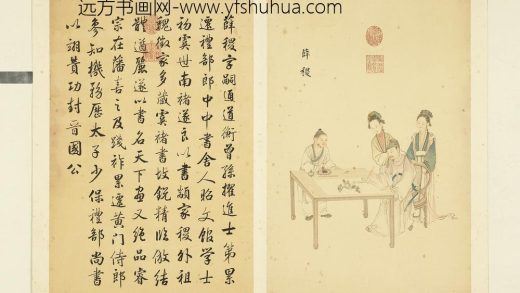 远方书画网 - www.yfshuhua.com
薛稷
薛稷字嗣通道衡曾孫擢進士第累
遷禮部郎中中書舍人昭文館学士
初虞世南褚遂良以書顓家稷外祖
魏徵家多藏虞褚書故銳精臨倣結
體遒麗遂以書名天下畫又絶品睿
宗在藩喜之及踐祚累遷黄门侍郎
參知機務歷太子少保禮部尚書
以翊贊功封晉國公